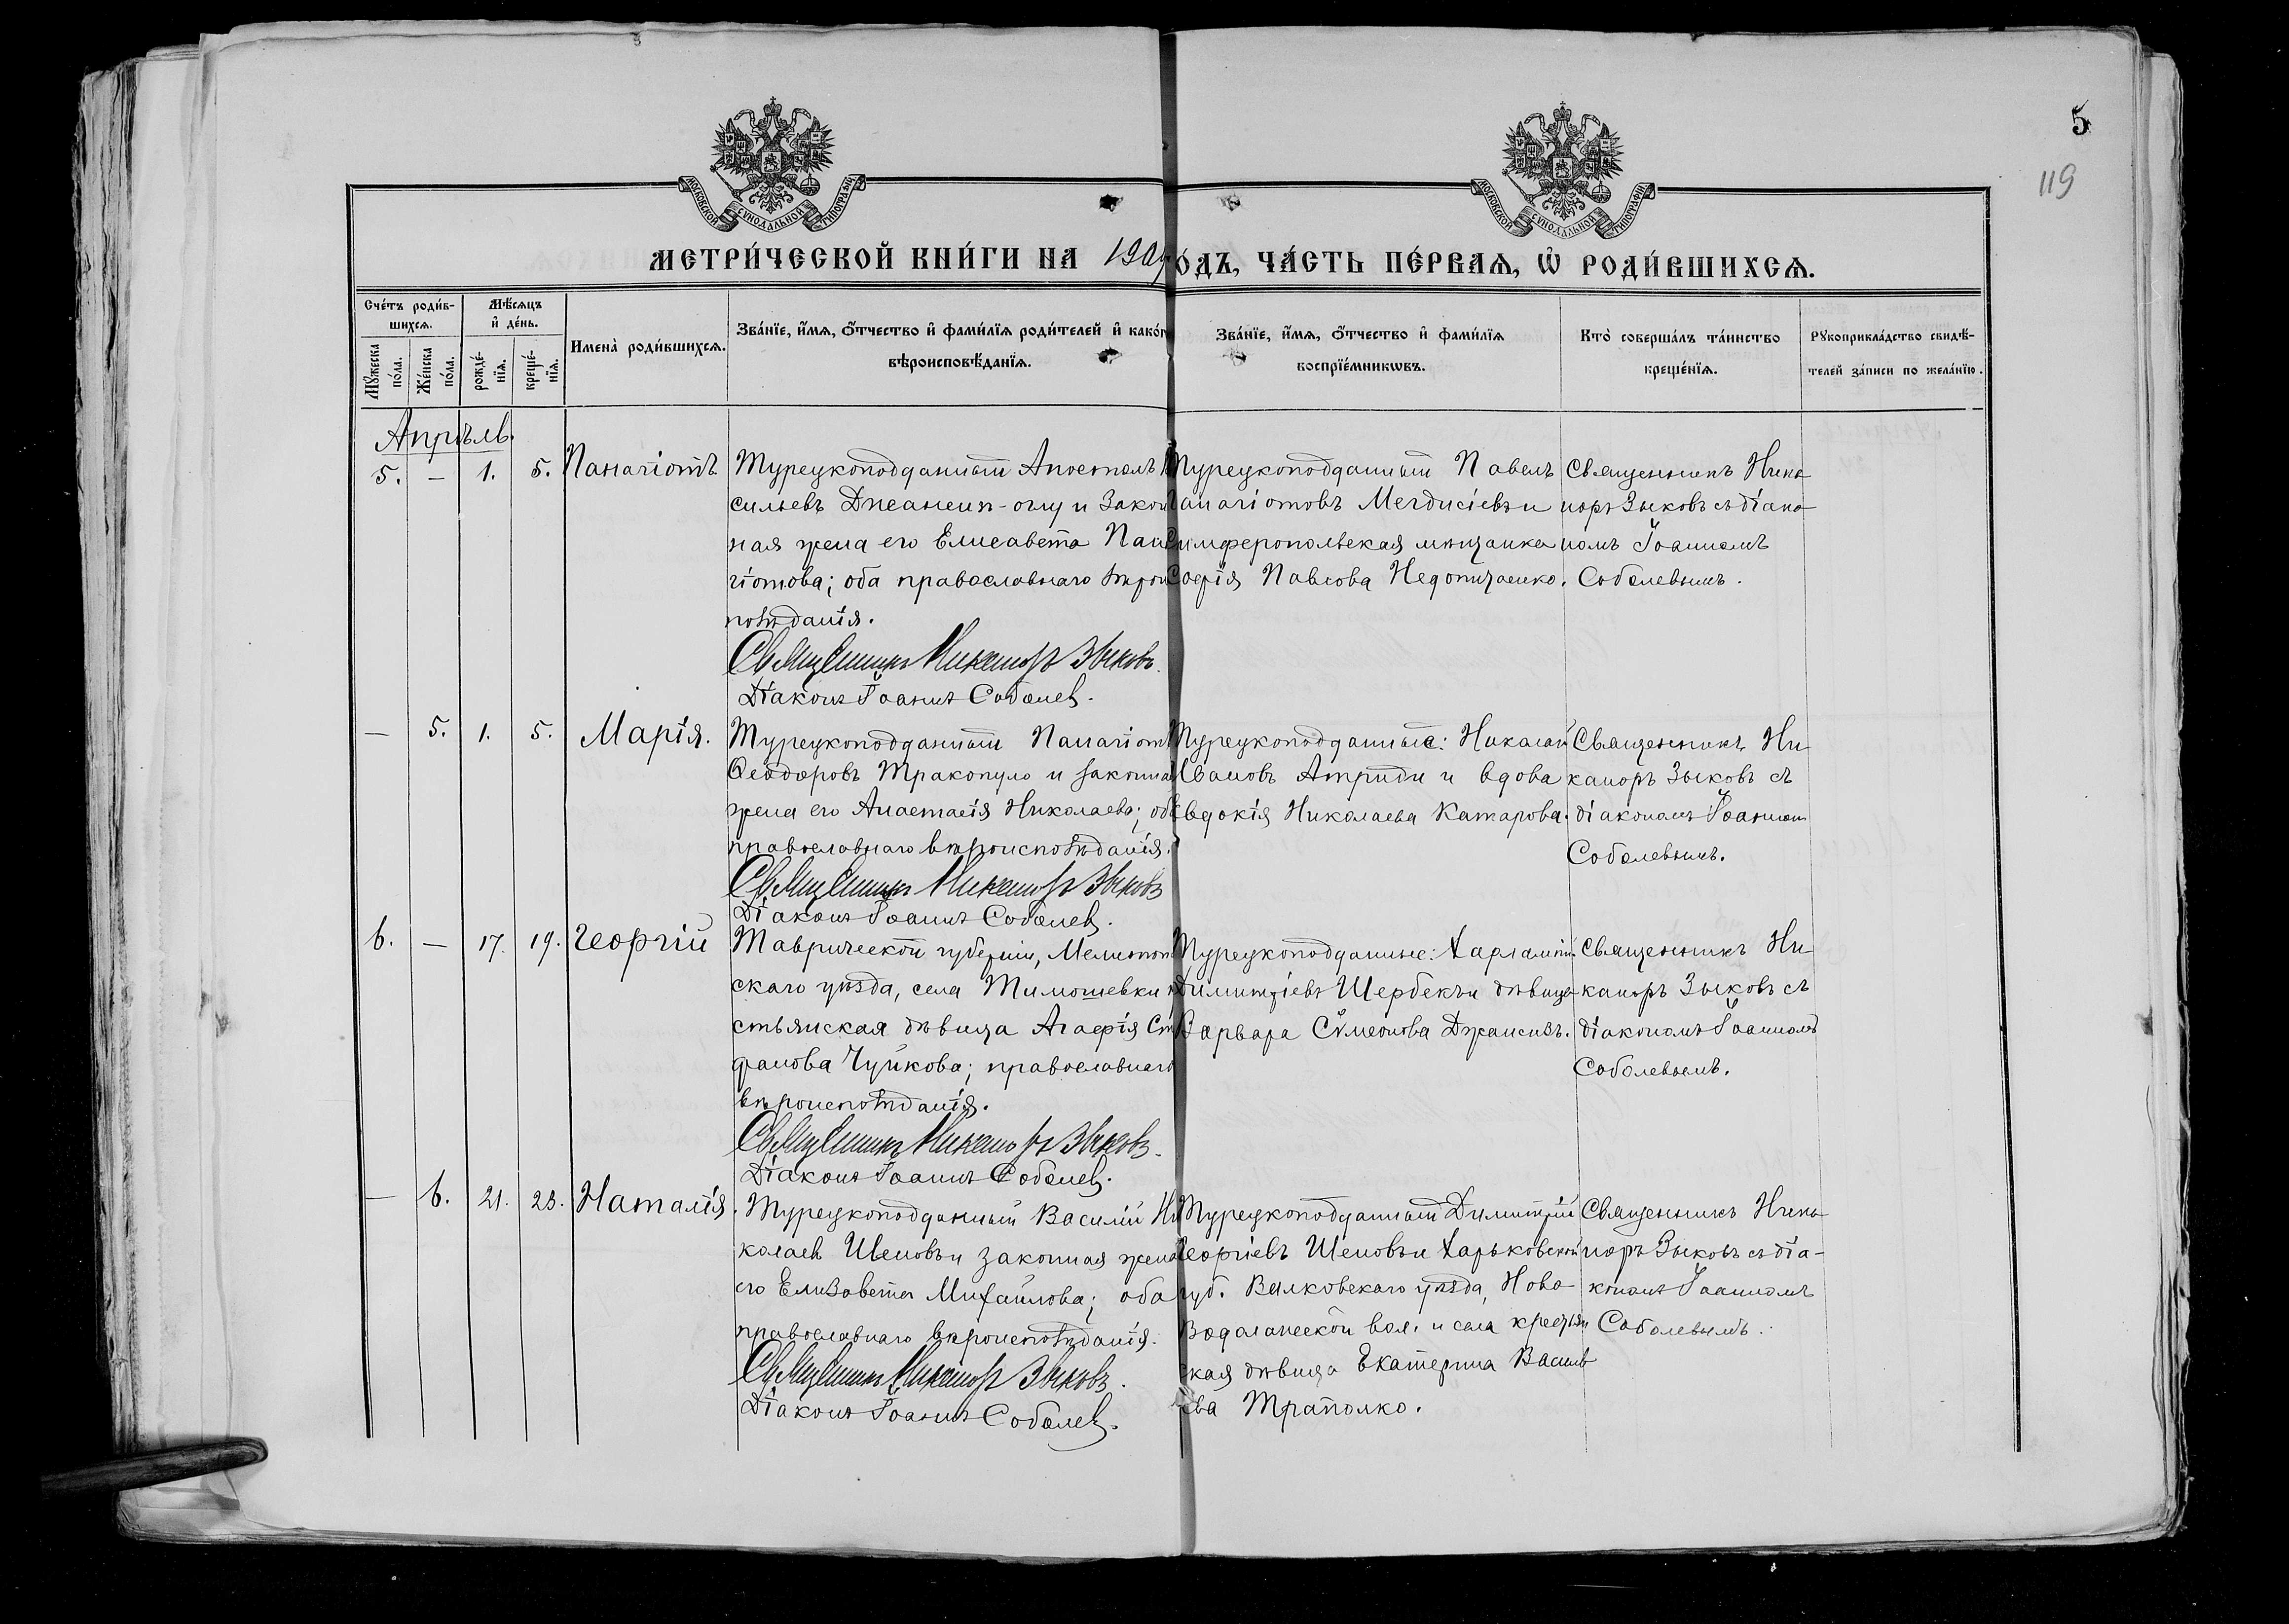 5
119
МОСКОВСКОЙ СУНОДАЛЬНОЙ ТИПОГРАФІИ
МОСКОВСКОЙ СУНОДАЛЬНОЙ ТИПОГРАФІИ
МЕТРИ́ЧЕСКОЙ КНИ́ГИ НА 190
О́ДЪ, ЧА́СТЬ ПЕ́РВАѦ, Ѡ҆ РОДИ́ВШИХСѦ.
Сче́тъ роди́в-
шихсѧ.
Мꙋ́жеска
по́ла.
Же́нска
по́ла.
Мѣ́сѧцъ
и҆ де́нь.
рожде́-
нїѧ.
креще́-
нїѧ.
Имена̀ роди́вшихсѧ.
Зва́нїе, и҆́мѧ, ѻ҆́тчество и҆ фами́лїѧ роди́телей и҆ како́г
вѣроисповѣ́данїѧ.
Зва́нїе, и҆́мѧ, ѻ҆́тчество и҆ фами́лїѧ
воспрїе́мникѡвъ.
Кто̀ соверша́лъ та́инство
креще́нїѧ.
Рꙋкоприкла́дство свидѣ́-
телей за́писи по жела́нїю.
Апрѣль.
5. — 1. 5. Панагіотъ
Турецкоподданный Апостолъ
сильевъ -оглу и закон
ная жена его Елисавета Пан
гіотова; оба православнаго вѣрои
повѣданія.
Священникъ Никаноръ Зыковъ.
Діаконъ Іоаннъ Соболев.
Турецкоподданный Павелъ
Панагіотовъ Мегдисіевъ и
Симферопольская мѣщанка
Софія Павлова
Священникъ Ника-
норъ Зыковъ съ діако-
номъ Іоанномъ
Соболевымъ.
— 5. 1. 5. Марія.
Турецкоподданный Панагіот
Ѳеодоровъ Тракопуло и законная
жена его Анастасія Николаева; оба
православнаго вѣроисповѣданія.
Священникъ Никаноръ Зыковъ
Діаконъ Іоаннъ Соболев.
Турецкоподданные: Николай
Ивановъ Атриди и вдова
Евдокія Николаева Катарова.
Священникъ Ни-
каноръ Зыковъ съ
діакономъ Іоанномъ
Соболевымъ.
6. — 17. 19. Георгій
Таврической губерніи, Мелитопол
скаго уѣзда, села Тимошевки
стьянская дѣвица Агафія Сте
фанова Чуйкова; православнаго
вѣроисповѣданія.
Священникъ Никаноръ Зыковъ.
Діаконъ Іоаннъ Соболев.
Турецкоподданные: Харлампій
Димитріевъ Шербекъ и дѣвица
Варвара Сѵмеонова
Священникъ Ни-
каноръ Зыковъ съ
діакономъ Іоанномъ
Соболевымъ.
— 6. 21. 23. Наталія.
Турецкоподданный Василій Ни
колаев Шеновъ и законная жена
его Елизавета Михаилова; оба
православнаго вѣроисповѣданія.
Священникъ Никаноръ Зыковъ.
Діаконъ Іоаннъ Соболев.
Турецкоподданный Димитрій
Георгіевъ Шеновъ и Харьковской
губ. Валковскаго уѣзда, Ново-
Водолажской вол. и села крестьян
ская дѣвица Екатерина Василь
ева
Священникъ Ника-
норъ Зыковъ съ діа-
кономъ Іоанномъ
Соболевымъ.